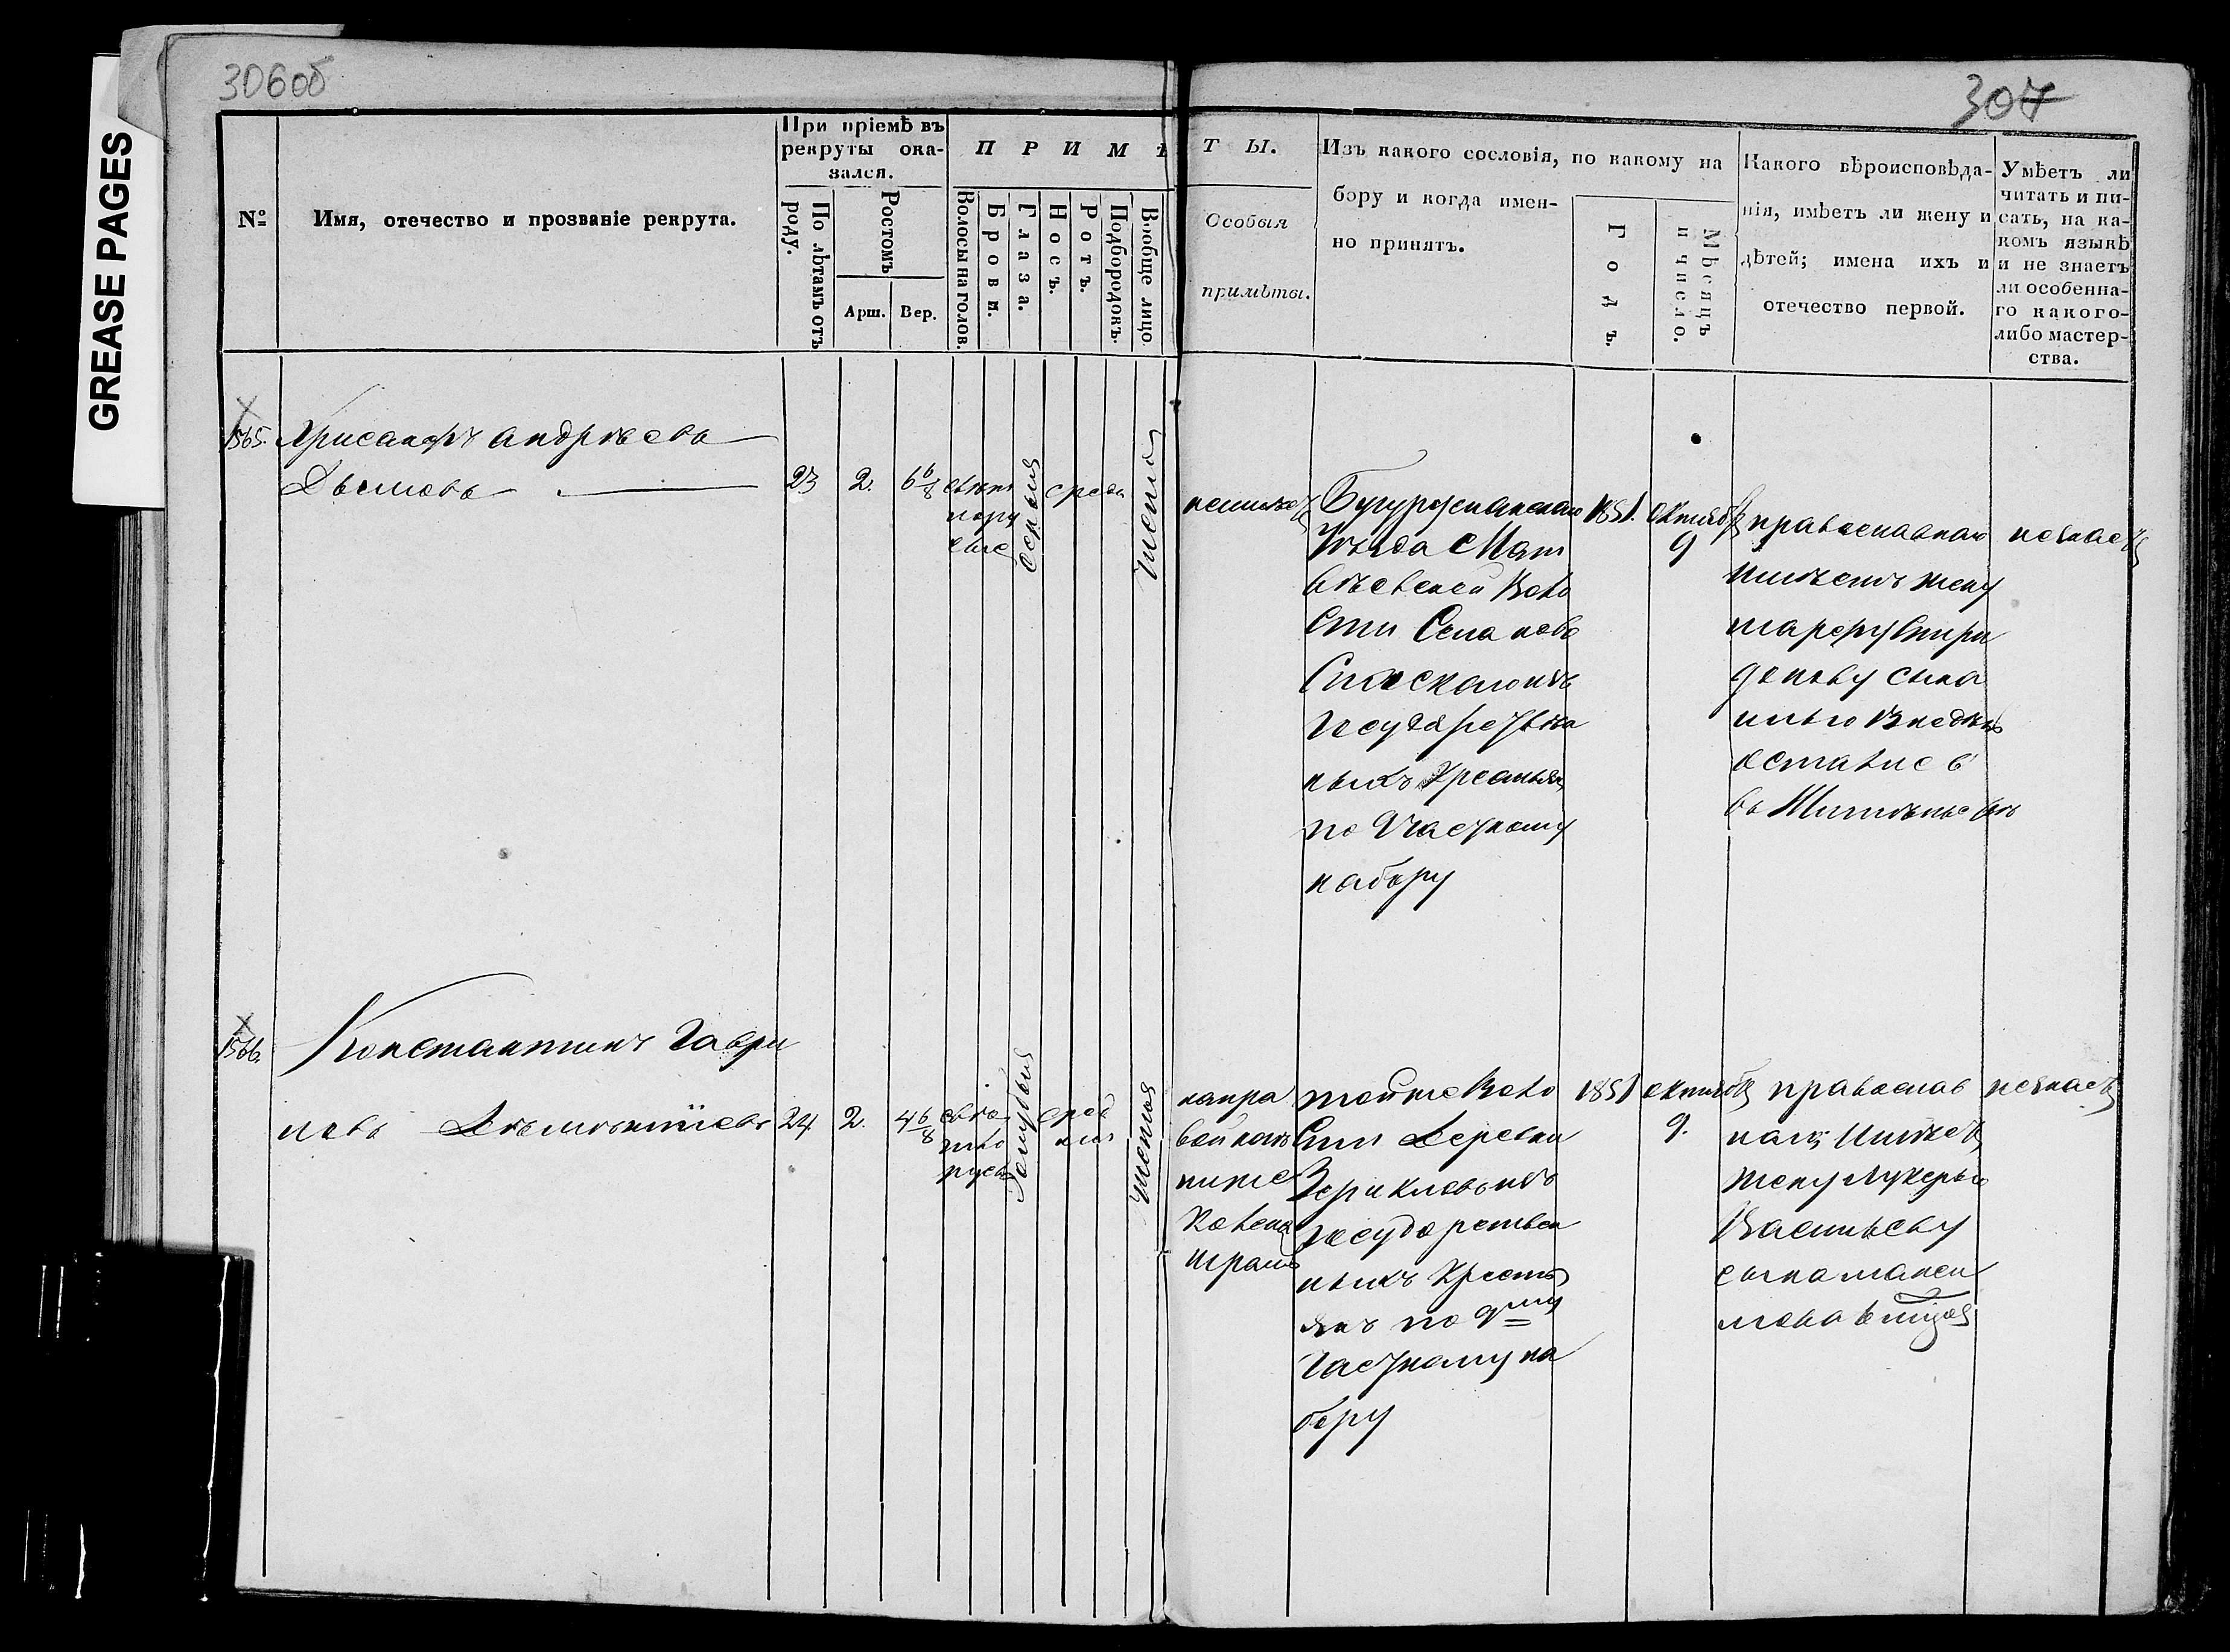 GREASE PAGES
306 об
307
№
Имя, отечество и прозваніе рекрута.
При пріемѣ въ
рекруты ока-
зался.
По лѣтамъ отъ
роду.
Ростомъ
Арш.
Вер.
ПРИМѢ
Волосы на голов.
Брови.
Глаза.
Носъ.
Ротъ.
Подбородокъ.
Вообще лицо.
ТЫ.
Особыя
примѣты.
Изъ какого сословія, по какому на
бору и когда имен-
но принятъ.
Годъ.
Мѣсяцъ
и число.
Какого вѣроисповѣда-
нія, имѣетъ ли жену и
дѣтей; имена ихъ и
отечество первой.
Умѣетъ ли
читать и пи-
сать, на ка-
комъ языкѣ
и не знаетъ
ли особенна-
го какого-
либо мастер-
ства.
1565.
Хрисанфъ Андрѣевъ
Дымовъ
23
2.
6 6/8
свѣтл
порусые
серыя
средн
чистое
неимѣетъ
Бугурусланскаго
Уѣзда Мат
вѣевской Воло
сти Села Ново
Спаскаго изъ
Государствен
ныхъ Крестьян
по Частному
набору
1851.
Октября
9
православнаго
имѣетъ жену
Марфу Спири
донову сына
Илью
остались
въ Жительствѣ
незнаетъ
1566.
Константинъ Гаври
ловъ
24
2.
4 6/8
свѣ
тло
русы
Голубыя
сред
ніи
чистое
направой ноге
ниже
Колена
шрамъ
тойже Воло
сти Деревни
Зериклы изъ
государствен
ныхъ Кресть
янъ по 9му
Частному на
бору
1851
Октября
9.
православ
наго Имѣетъ
жену Лукерью
Васильеву
сына Макси
мова
незнаетъ